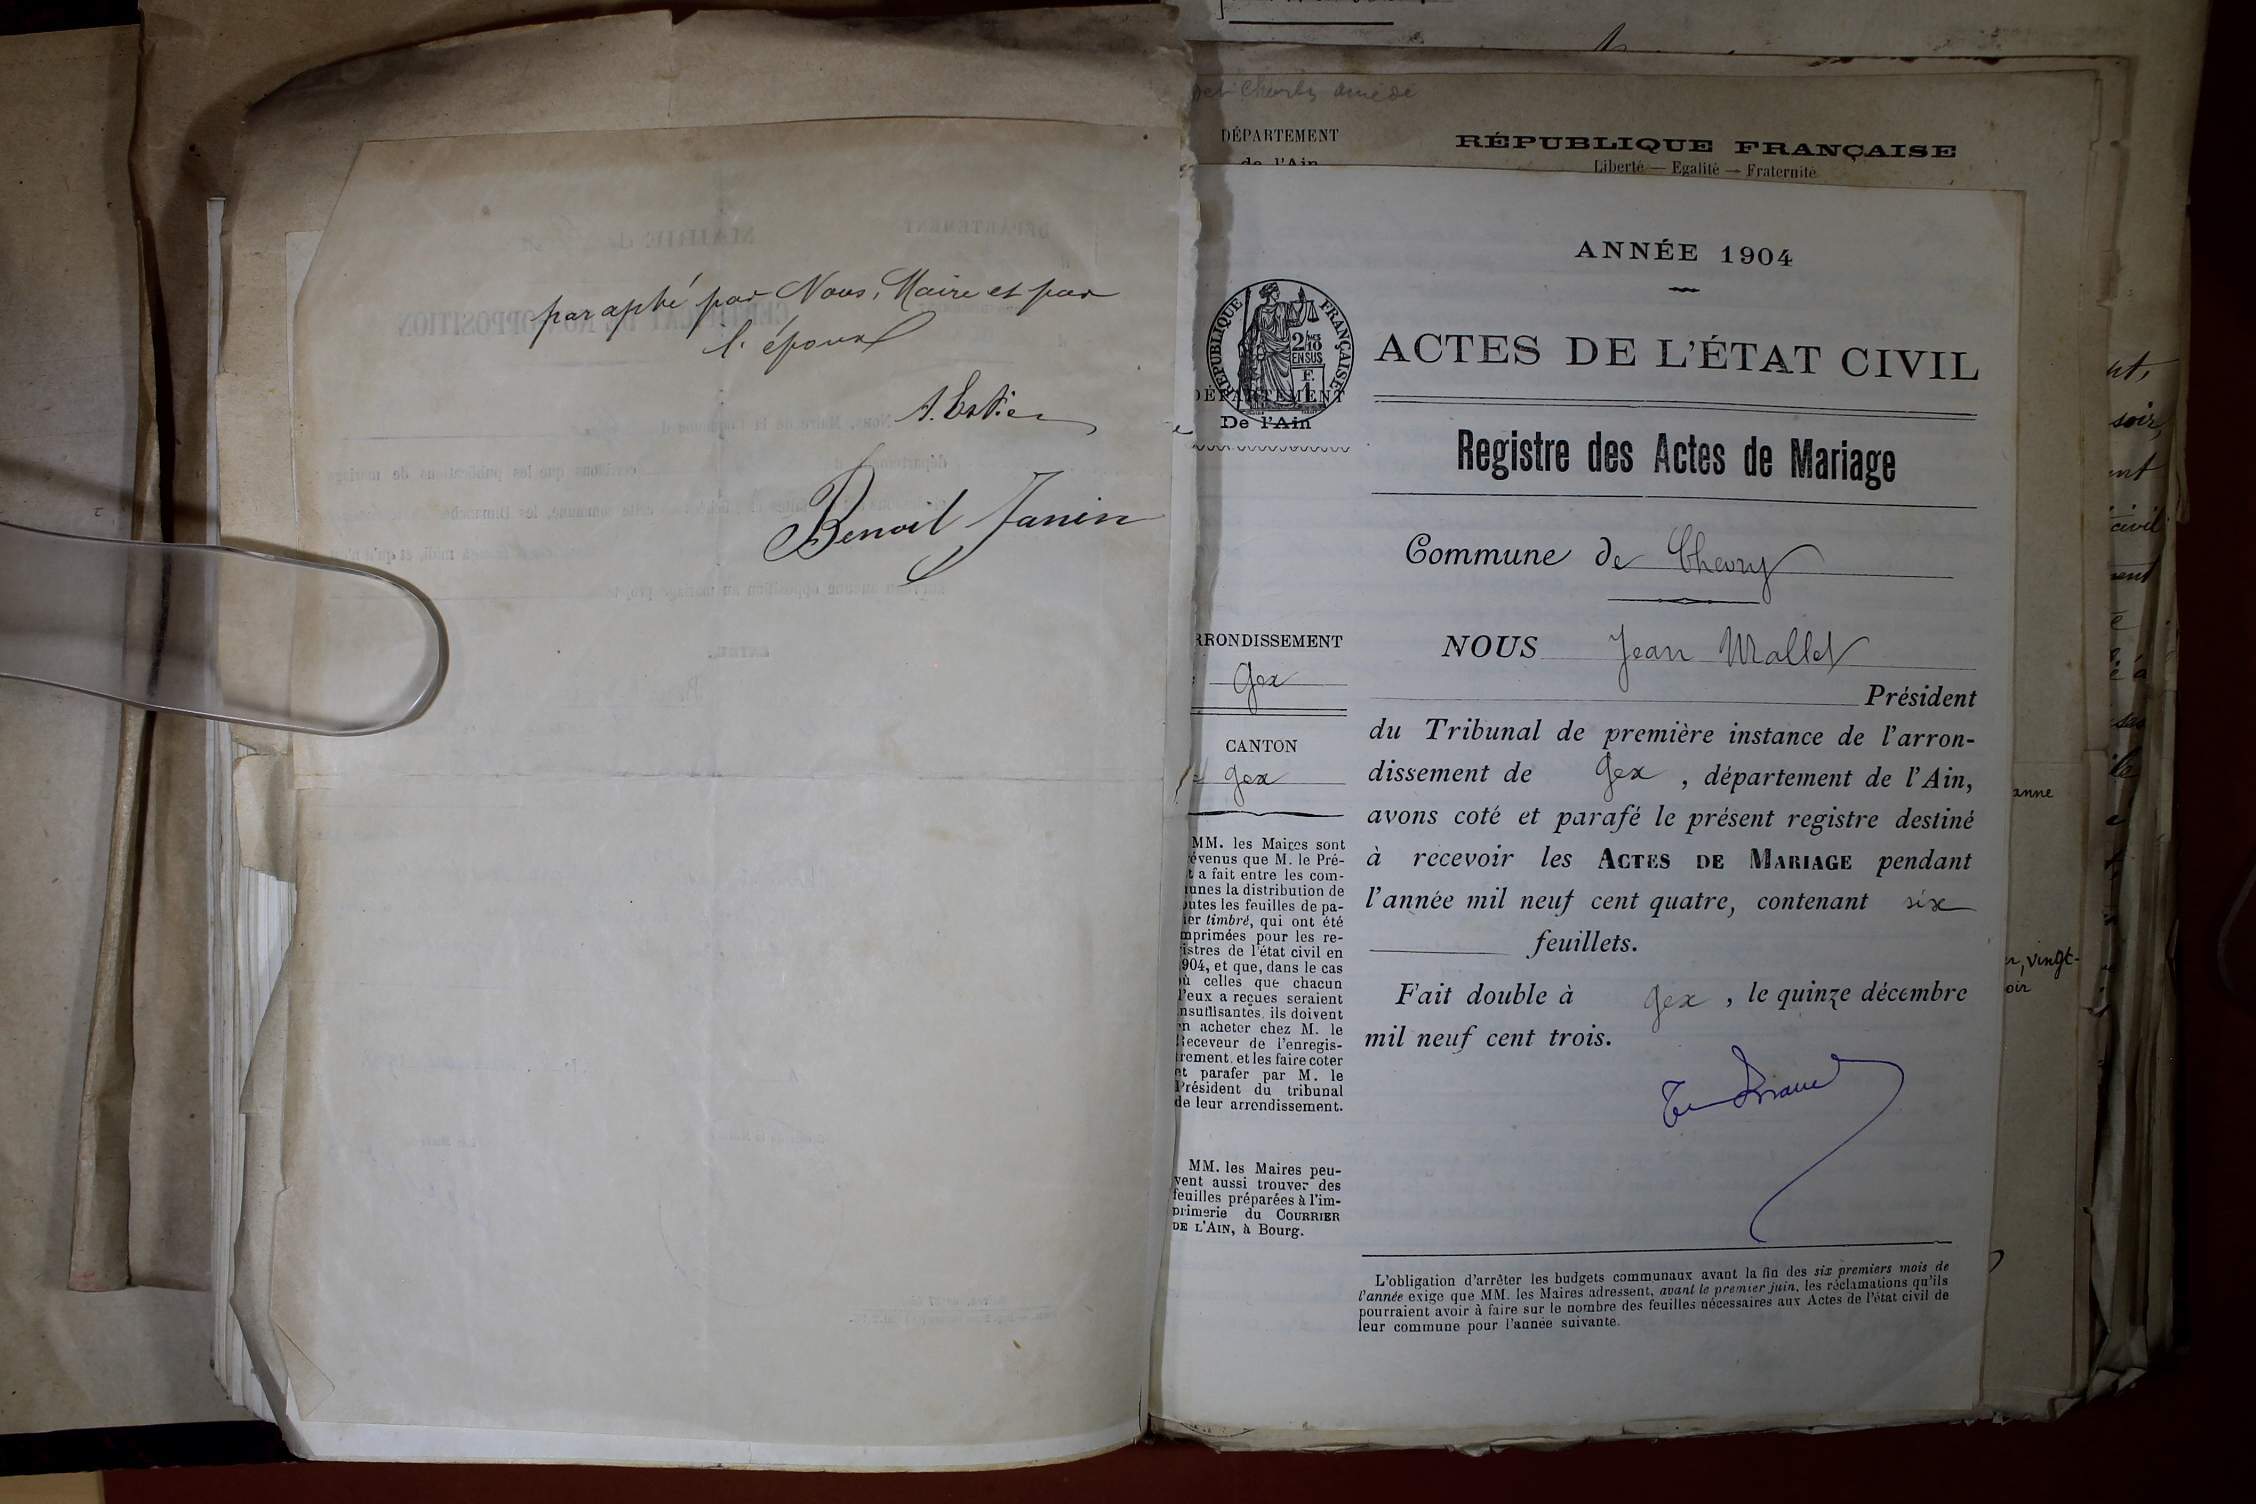 paraphé par Nous, Maire et par
l'époux
Benoit Janin
DÉPARTEMENT
de l'Ain
RÉPUBLIQUE FRANÇAISE
Liberté — Egalité — Fraternité
ANNÉE 1904
RÉPUBLIQUE FRANÇAISE
2/10
EN SUS
F.
1
DÉPARTEMENT
De l'Ain
ACTES DE L'ÉTAT CIVIL
Registre des Actes de Mariage
Commune de Chevry
RRONDISSEMENT
Gex
CANTON
Gex
MM. les Maires sont
évenus que M. le Pré-
t a fait entre les com-
unes la distribution de
outes les feuilles de pa-
ier timbré, qui ont été
mprimées pour les re-
istres de l'état civil en
904, et que, dans le cas
où celles que chacun
d'eux a reçues seraient
nsuffisantes, ils doivent
en acheter chez M. le
Receveur de l'enregis-
trement, et les faire coter
et parafer par M. le
Président du tribunal
de leur arrondissement.
MM. les Maires peu-
vent aussi trouver des
feuilles préparées à l'im-
primerie du COURRIER
DE L'AIN, à Bourg.
NOUS Jean Mallet
Président
du Tribunal de première instance de l'arron-
dissement de Gex, département de l'Ain,
avons coté et parafé le présent registre destiné
à recevoir les ACTES DE MARIAGE pendant
l'année mil neuf cent quatre, contenant six
feuillets.
Fait double à Gex, le quinze décembre
mil neuf cent trois.
L'obligation d'arrêter les budgets communaux avant la fin des six premiers mois de
l'année exige que MM. les Maires adressent, avant le premier juin, les réclamations qu'ils
pourraient avoir à faire sur le nombre des feuilles nécessaires aux Actes de l'état civil de
leur commune pour l'année suivante.
anne
vingt-
oir
soir,
civil